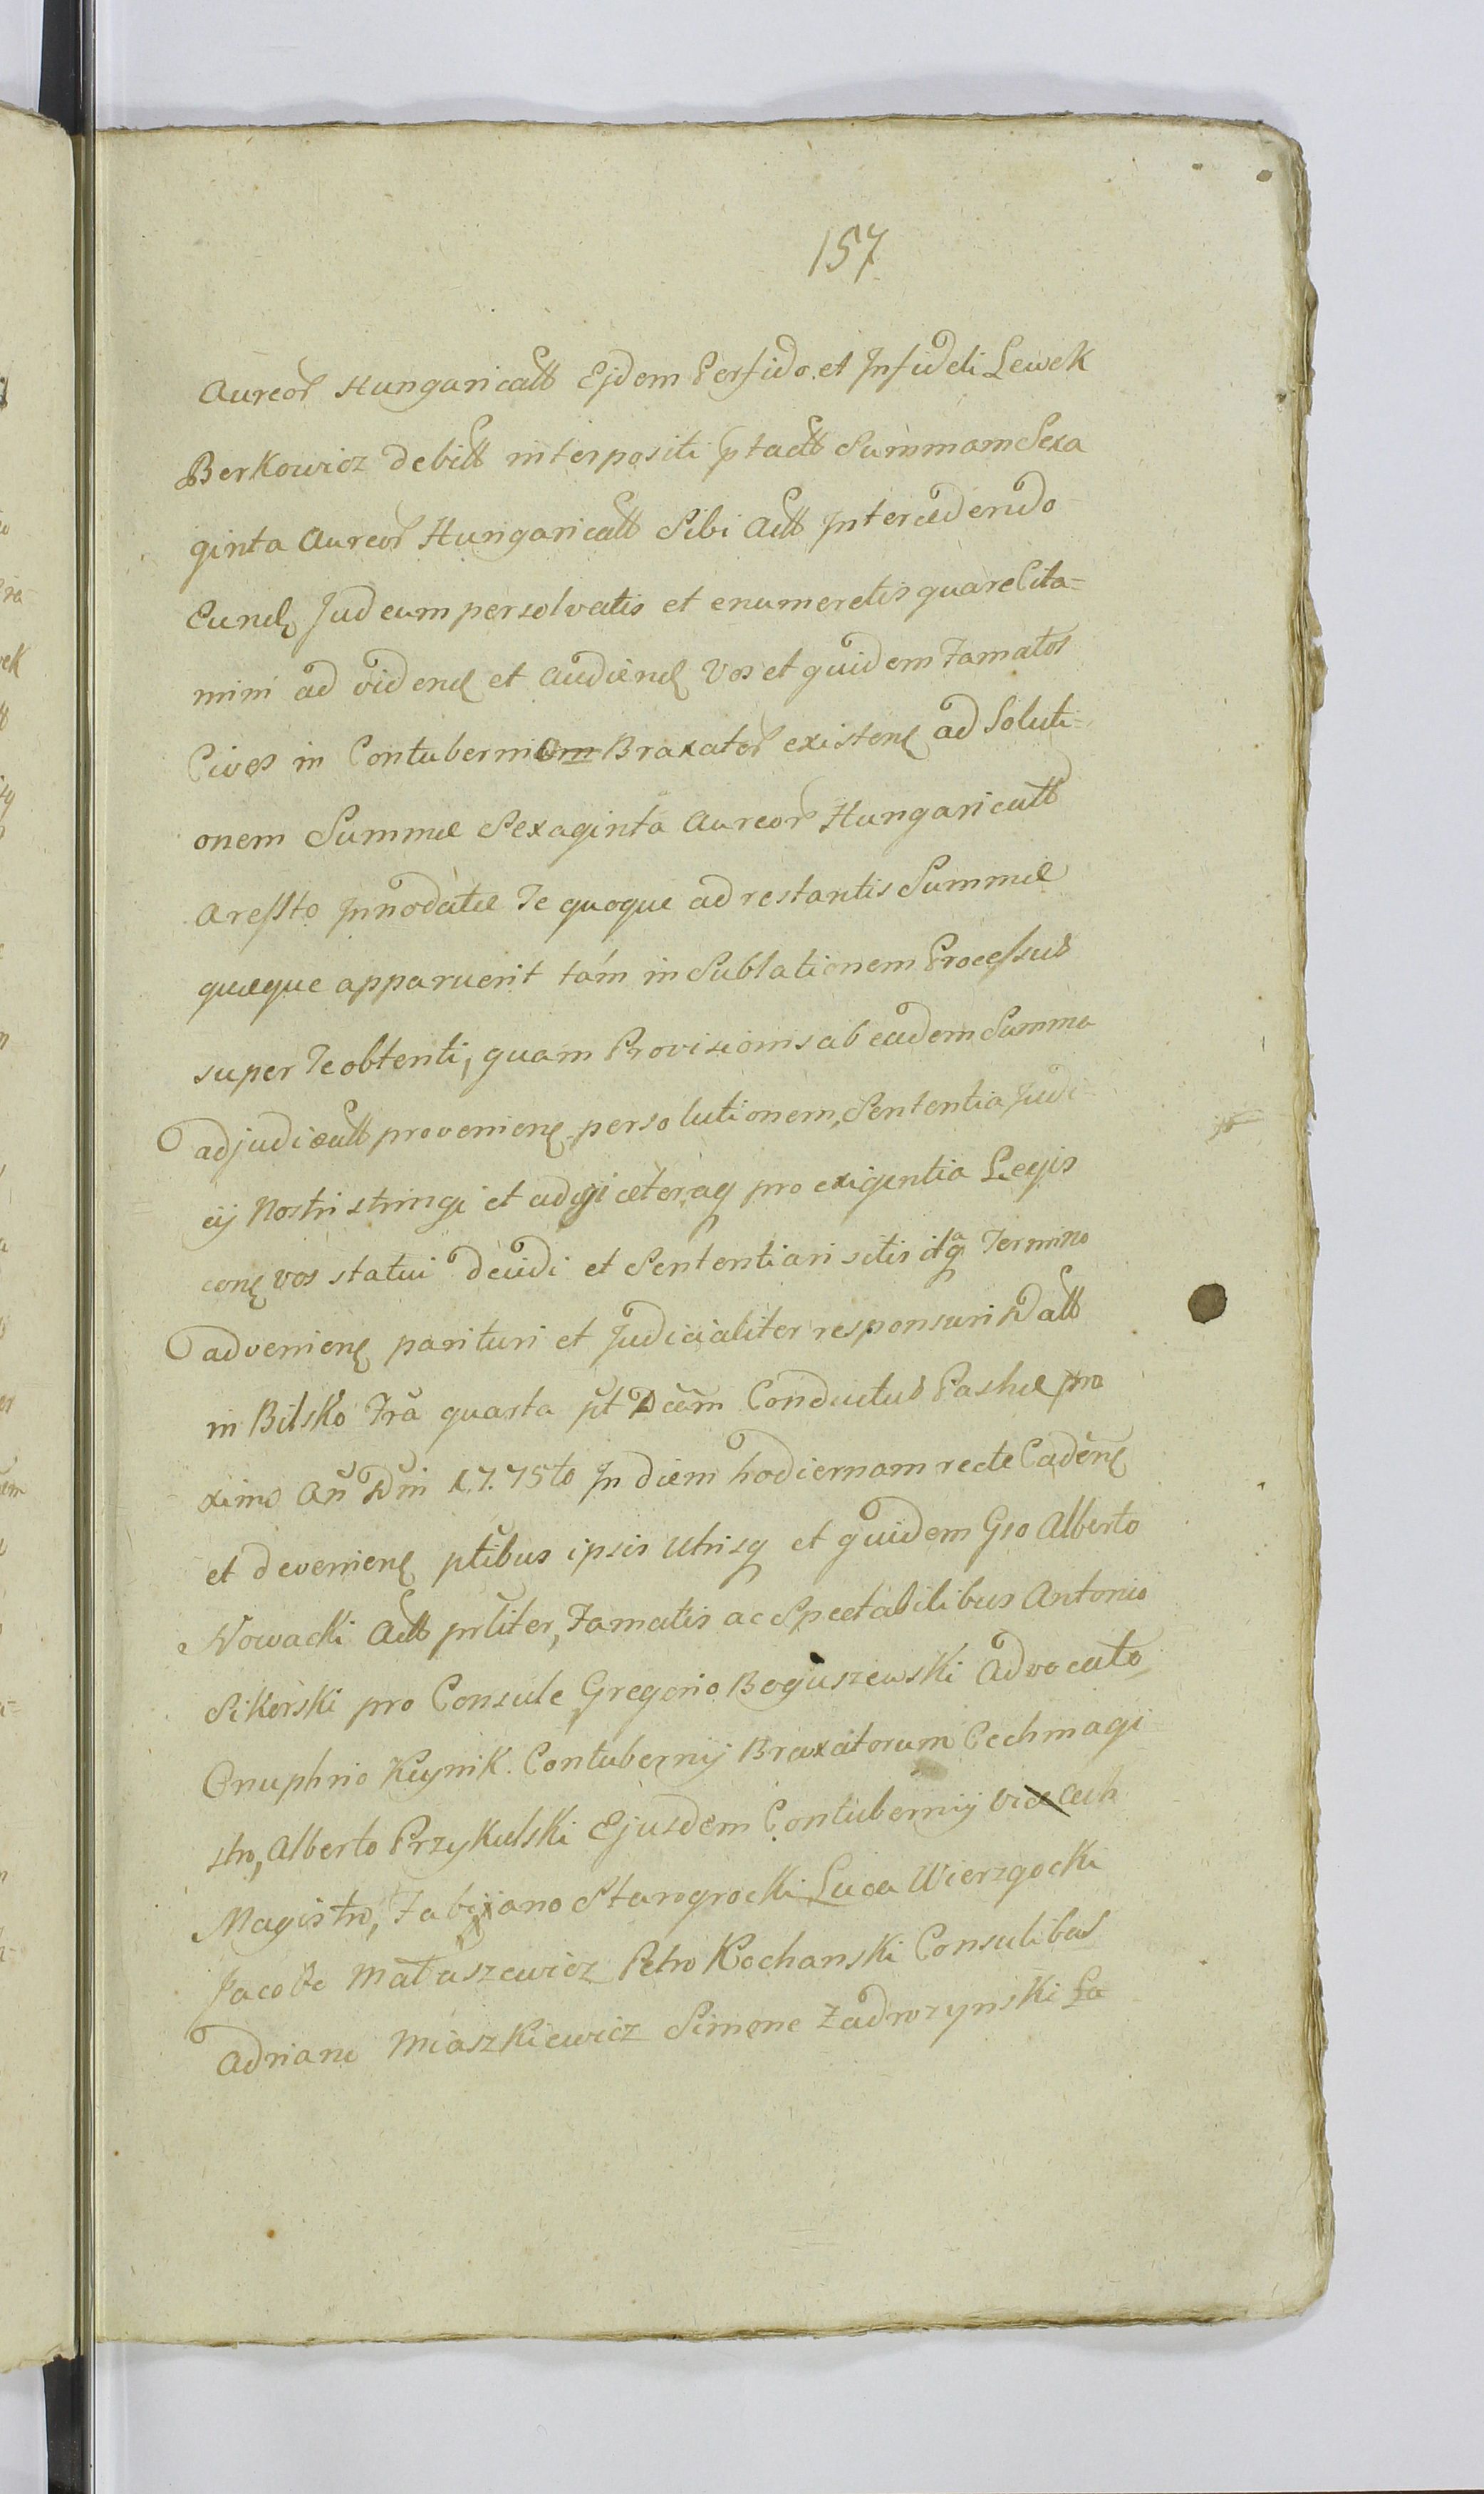 157
Aureor Hungaricalb Ejdem Perfido et Infideli Lewek
Berkowicz debitt interpositi ptactt Summam Sexa
ginta Aureor Hungaricalt Sibi Actt Intercedendo
Eund Judeum persolvatis et enumeretis quare Cita=
mini ad vidend et audiend Vos et quidem Famatos
Cives in Contubernium Braxator existen ad Soluti=
onem Summæ Sexaginta Aureor Hungaricalt
Aressto Innodatæ Te quoque ad restantis Summæ
quæque apparuerit tám in Sublationem Processus
super Te obtenti, quam Provisionis ab eadem Summa
adjudicatt provenien persolutionem, Sententia Judi
cij Nostri stringi et adigi cæteraq pro exigentia Legis
con vos statui decidi et Sententiari sitis itq Termino
advenien parituri et Judicialiter responsuri Datt
in Bilsko Fra quarta pt Dcam Conductus Paschæ pro
ximo An Dni 1775to In diem hodiernam recte Caden
et devenien ptibus ipsis utrisq et quidem Gso Alberto
Nowacki Actt prliter, Famatis ac Spectabilibus Antonio
Sikorski pro Consule Gregorio Boguszewski Advocato
Onuphrio Kuynik Contubernij Braxatorum Cechmagi
stro, Alberto Przykulski Ejusdem Contubernij vice Cech
Magistro, Fabiano Starogrocki Luca Wierzgocki
Jacobo Mataszewicz Petro Kochanski Consulibus
Adriano Miaszkiewicz Simone Zadrozynski La